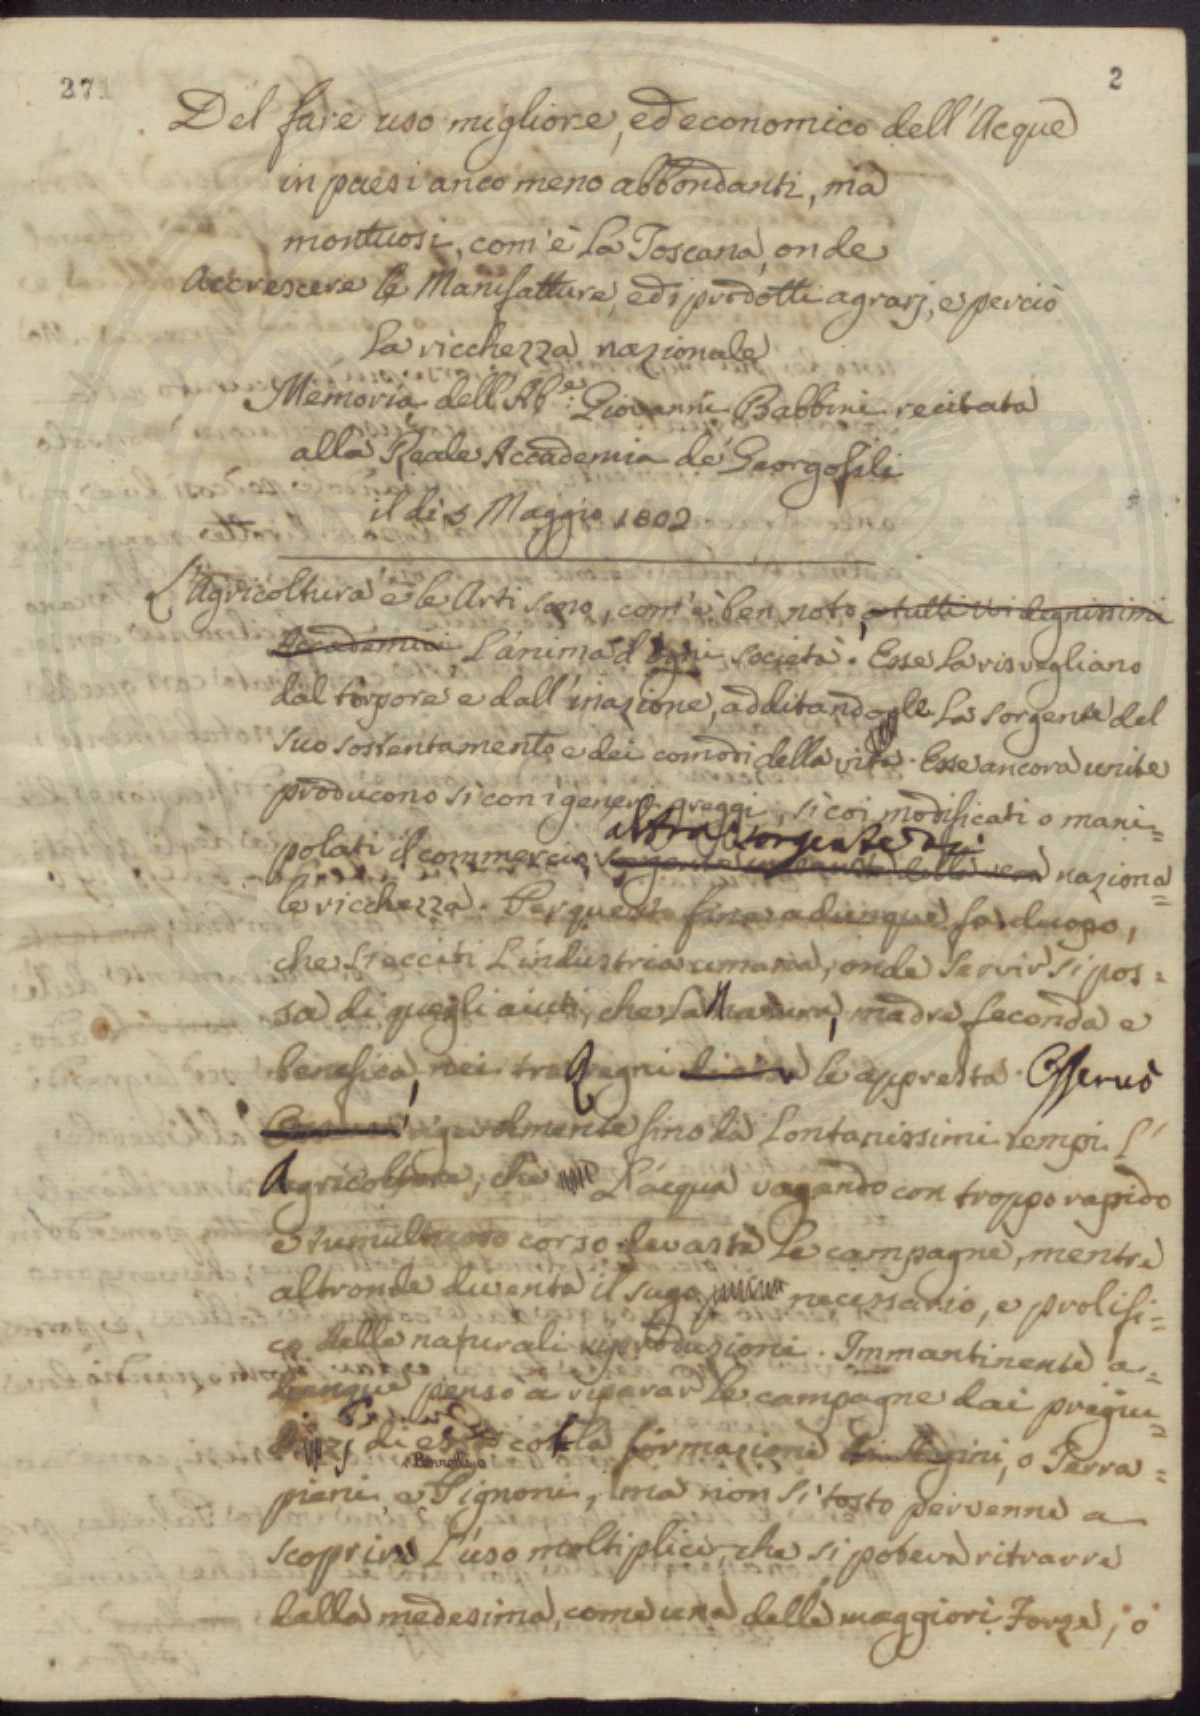 371
2
Del fare uso migliore, ed economico dell'Acque
in paesi anco meno abbondanti, ma
montuosi, com'è la Toscana, onde
accrescere le Manifatture, ed i prodotti agrarj, e perciò
la ricchezza nazionale
Memoria dell'Ab.e Giovanni Babbini recitata
alla Reale Accademia de' Georgofili
il dì 5 Maggio 1802
L'Agricoltura e le Arti sono, com'è ben noto, a tutti Voi degnissimi
Accademici L'anima d'ogni società. Esse la risvegliano
dal torpore e dall'inazione, additandogle la sorgente del
suo sostentamento e dei comodi della vita. Esse ancora unite
producono sì con i generi greggi, sì coi modificati o mani=
altra sorgente di
polati il commercio, sorgente della vera naziona=
le ricchezza. Per questo fine adunque fa d'uopo,
che si ecciti L'industria umana, onde servir si pos=
sa di quegli aiuti, che la Natura, madre feconda e
benefica, nei tre Regni le appresta. Osservò
agevolmente fino da Lontanissimi tempi L'
Agricoltura, che L'acqua vagando con troppo rapido
e tumultuoso corso devasta le campagne, mentre
altronde diventa il sugo necessario, e prolifi=
co delle naturali riproduzioni. Immantinente a=
dunque pensò a riparar le campagne dai pregiu=
dizj di essa colla formazione di Argini, o Terra=
Pennelli o
pieni, e Pignoni, ma non sì tosto pervenne a
scoprire L'uso moltiplice, che si poteva ritrarre
dalla medesima, come una delle maggiori Forze, o